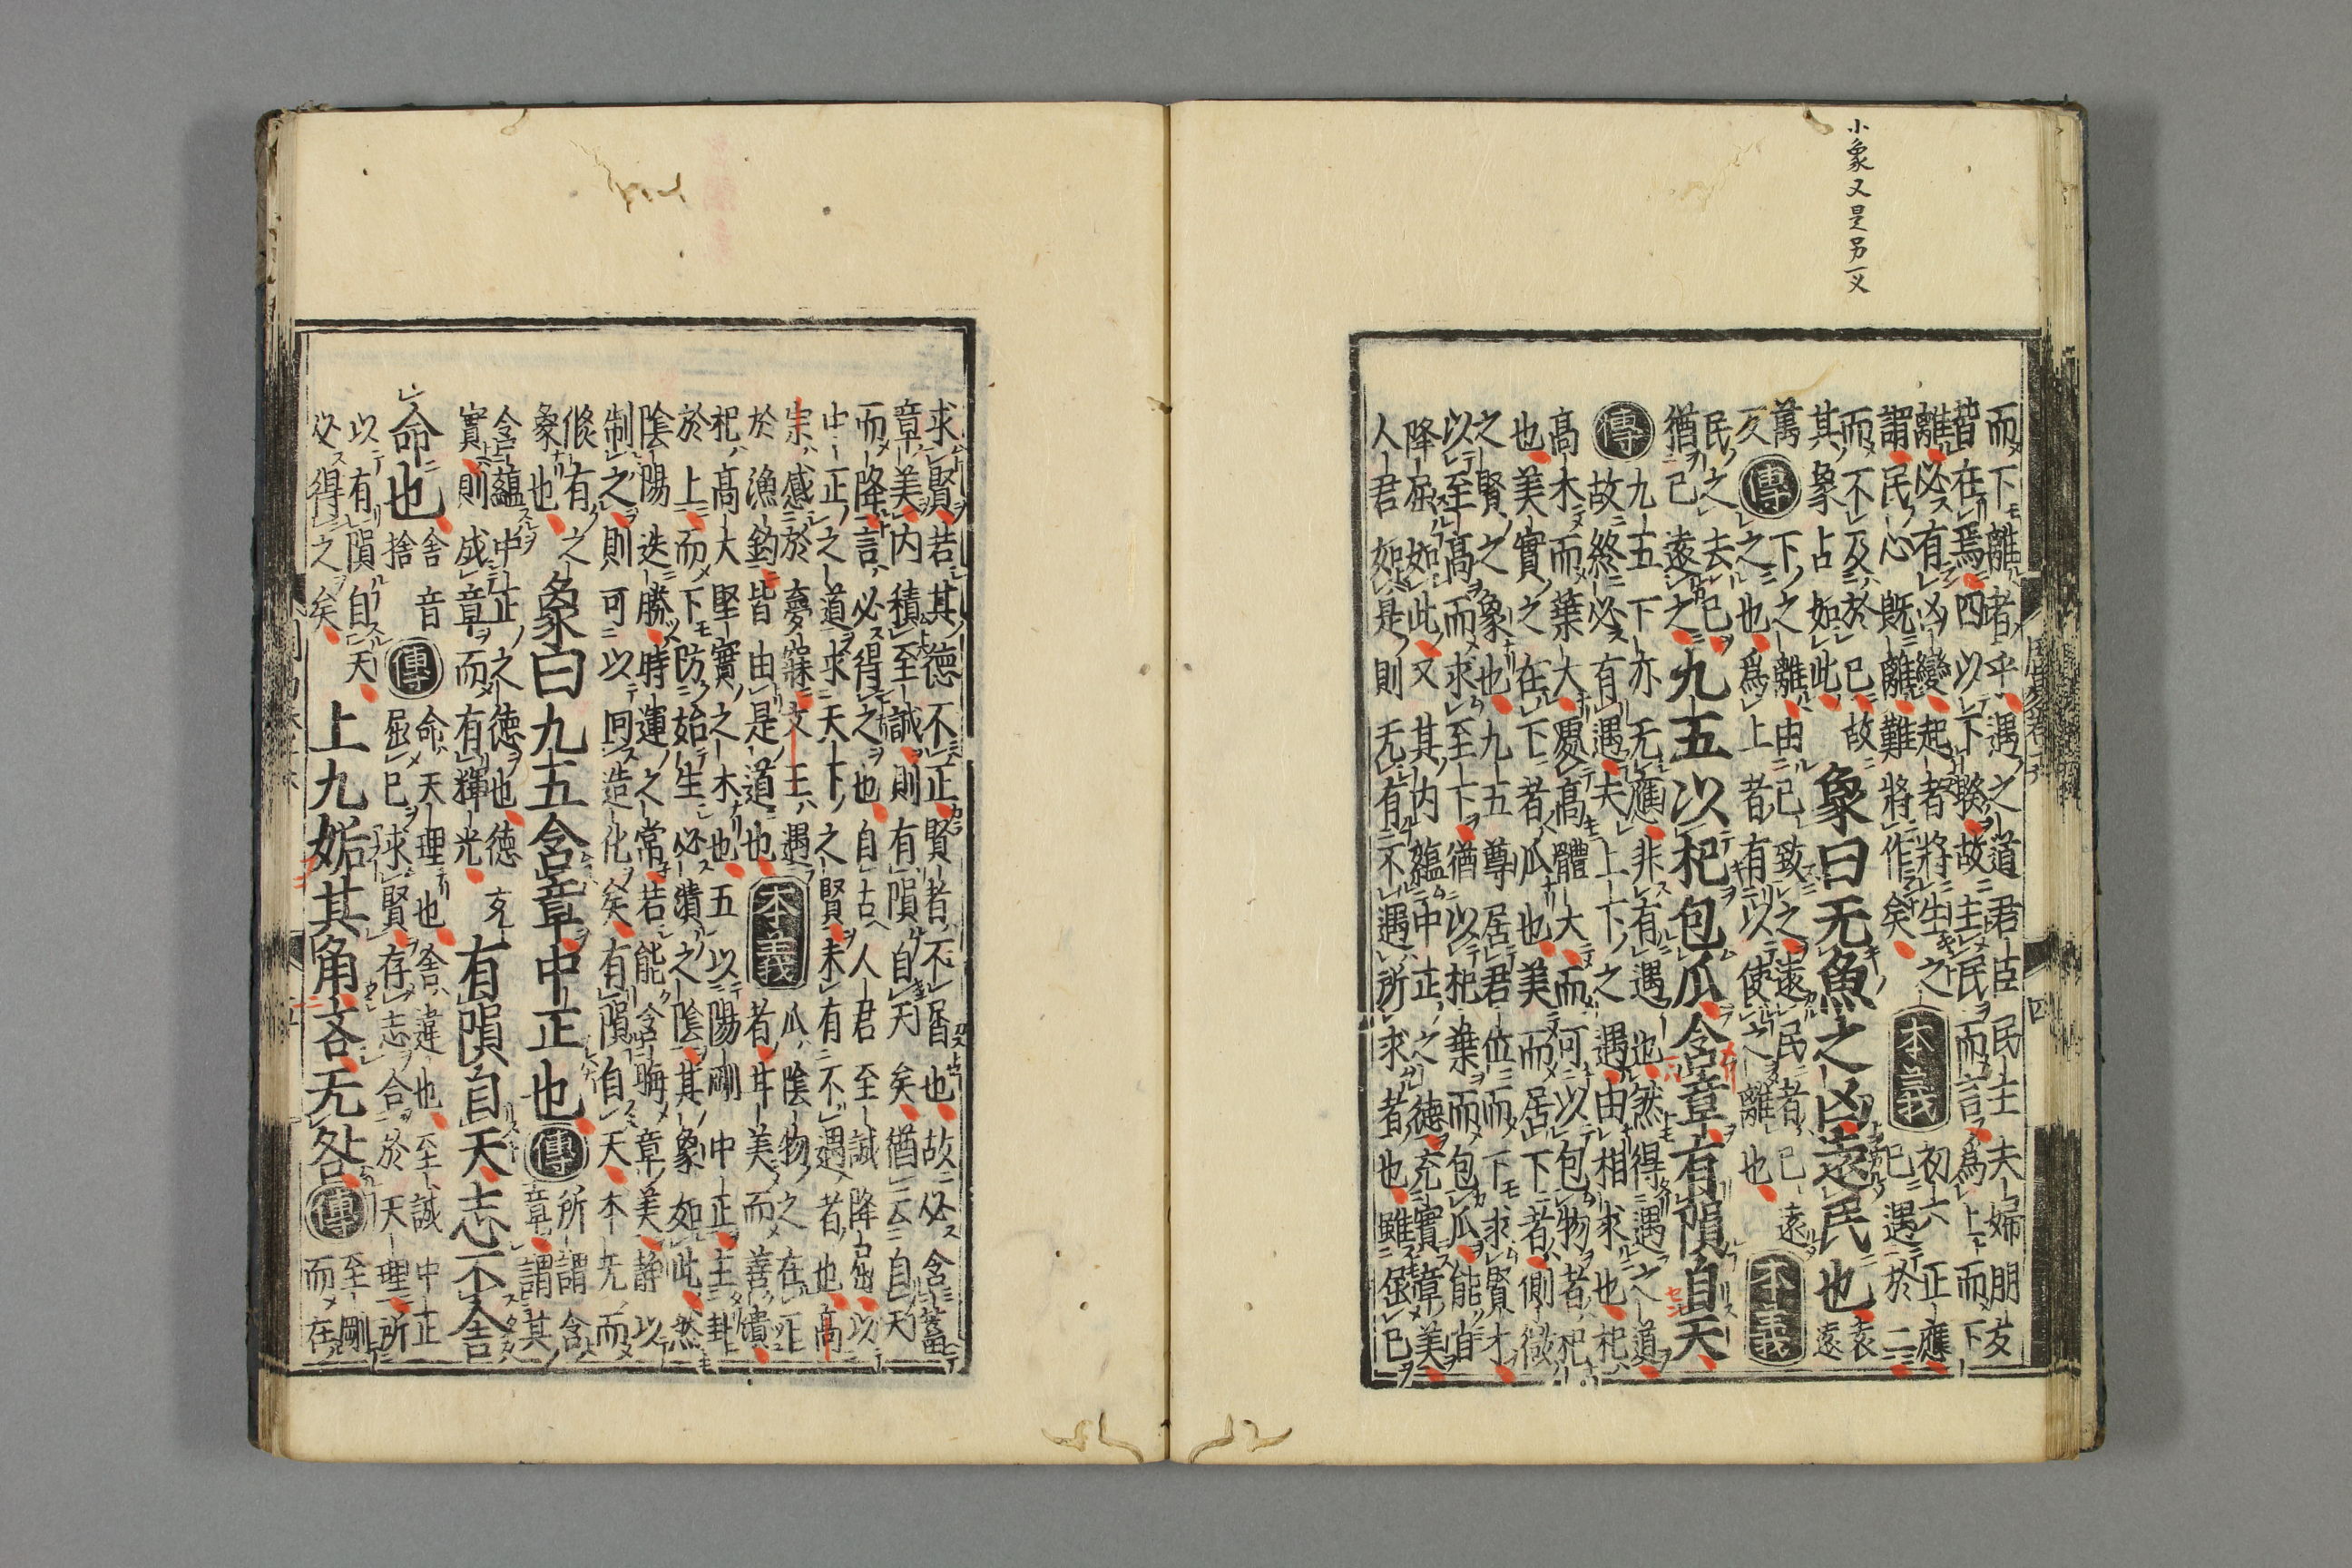 小象又是另一义
而下離者乎遇之道君臣民主夫婦朋友
皆在焉四以下睽故主民而言爲上而下
離必有凶變起者將生之
謂民心既離難將作矣
本義
初六正應
已遇於二
而不及於已故
其象占如此
象曰无魚之凶遠民也
遠袁
萬
反
傳
下之離由已致之遠民者已遠
之也爲上者有以使之離也
本義
民之去已
猶已遠之
九五以杞包瓜含章有隕自天
傳
九五下亦无應非有遇也然得遇之道
故終必有遇夫上下之遇由相求也杞
高木而葉大處高體大而可以包物者杞
也美實之在下者瓜也美而居下者側微
之賢之象也九五尊居君位而下求賢才
以至高而求至下猶以杞葉而包瓜能自
降屈如此又其内蘊中正之德充實章美
人君如是則无有不遇所求者也雖屈已
求賢若其德不正賢者不屑也故必含蓄
章美内積至誠則有隕自天矣猶云自天
而降言必得之也自古人君至誠降屈以
中正之道求天下之賢未有不遇者也高
宗感於夢寐文王遇
於漁釣皆由是道也
本義
瓜陰物之在下
者甘美而善潰
杞高大堅實之木也五以陽剛中正主卦
於上而下防始生必潰之陰其象如此然
陰陽迭勝時運之常若能含晦章美静以
制之則可以回造化矣有隕自天本无而
倐有之
象也
象曰九五含章中正也
傳
所謂含
章謂其
含蘊中正之德也德充
實則成章而有輝光
有隕自天志不舍
命也
舍音
捨
傳
命天理也舍違也至誠中正
屈已求賢存志合於天理所
以有隕自天
必得之矣
上九姤其角吝无咎
傳
至剛
而在